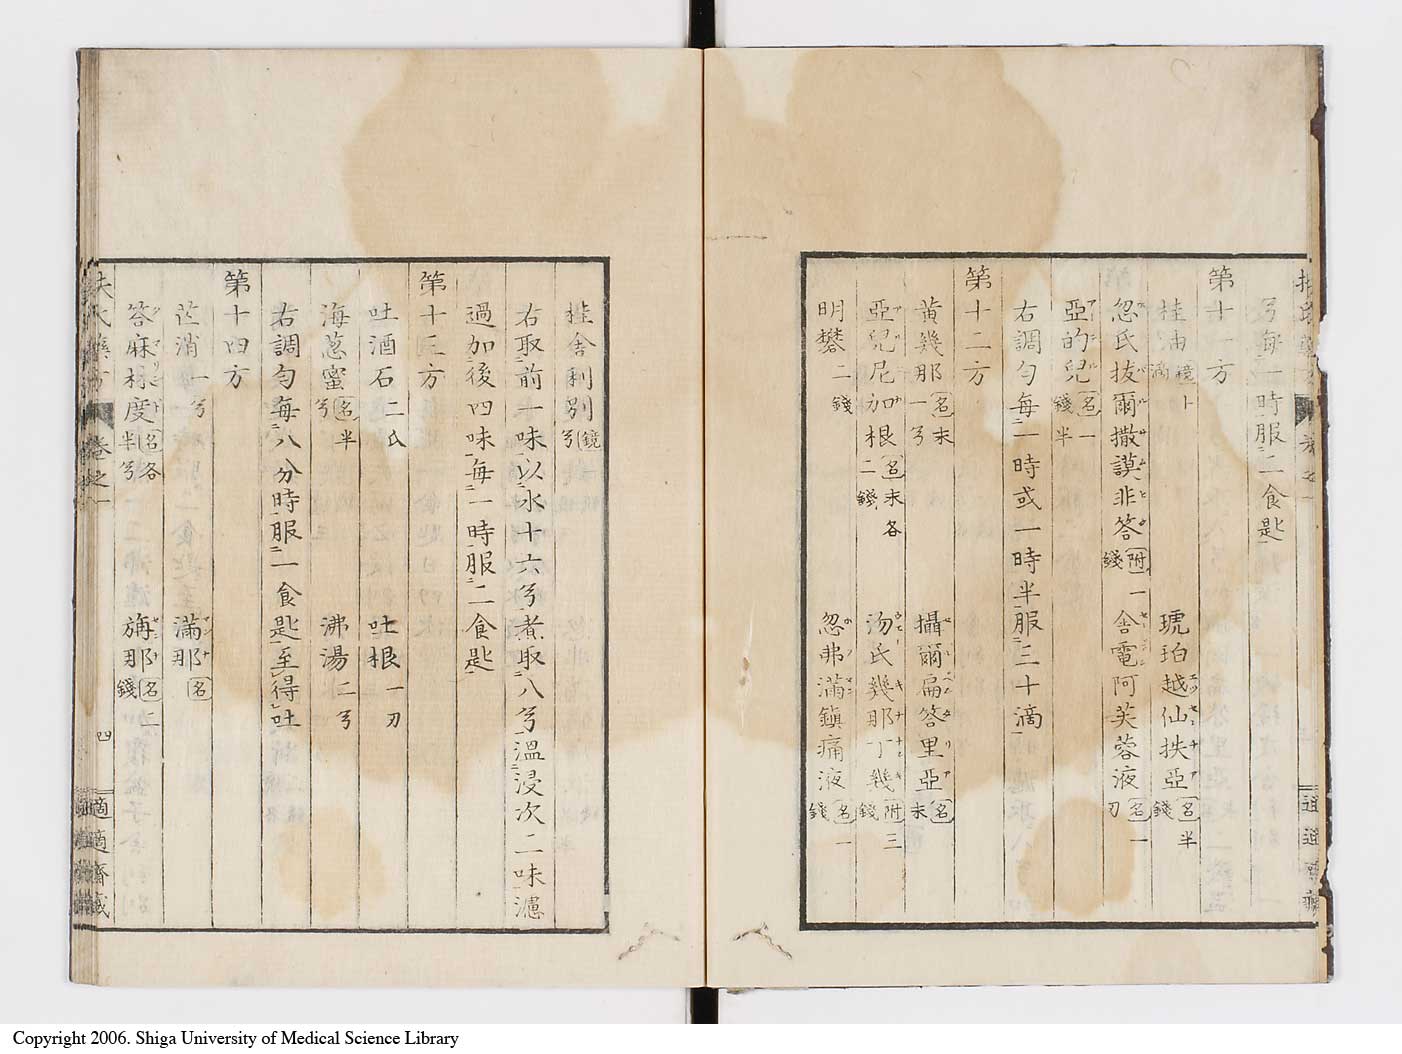 兮每一時服二食匙
第十一方
桂油 十滴
琥珀越仙挟亞 名半錢
忽氏拔爾撒謨非答 附一錢
舎電阿芙蓉液 名一刃
亞的兒 名一錢半
右調匀每一時或一時半服三十滴
第十二方
黄幾那 名末一兮
攝爾扁答里亞 名末
亞兒尼加根 名末各二錢
沕氏幾那丁幾 附三錢
明礬 二錢
忽弗滿鎮痛液 名一錢
橙舎利別 兮
右取前一味以水十六兮煮取八兮温浸次二味濾
過加後四味每一時服二食匙
第十三方
吐酒石 二氏
吐根 一刃
海葱蜜 名半兮
沸湯 二兮
右調匀每八分時服一食匙至得吐
第十四方
芒消 一兮
滿那 名
答麻林度 名各半兮
旃那 名二錢
扶氏 方
卷之一
四
適適齋藏
Copyright 2006. Shiga University of Medical Science Library